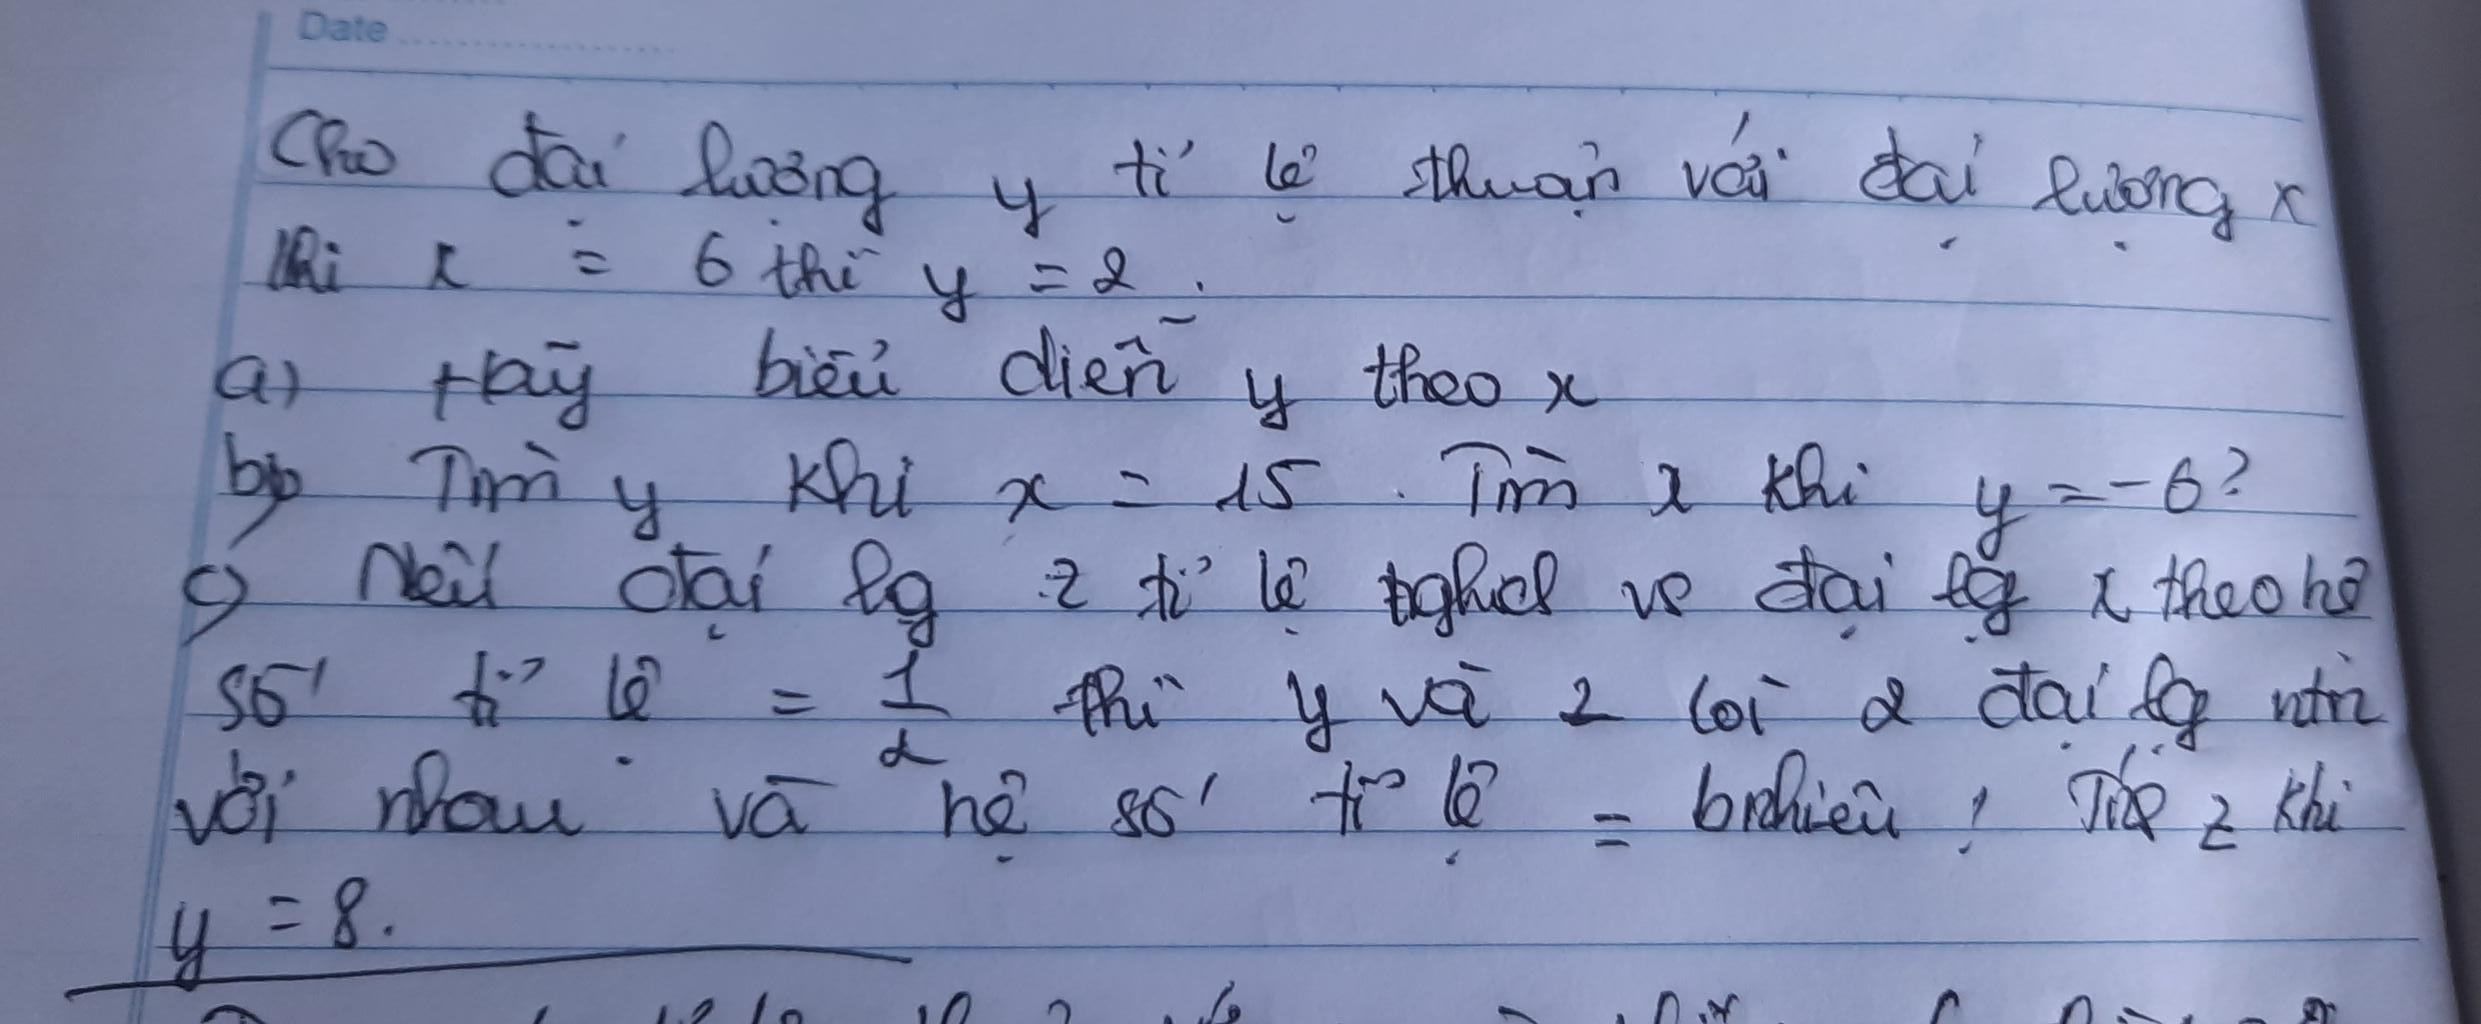 Date
Cho đại lượng y tỉ lệ thuận với đại lượng x
khi x = 6 thì y = 2.
a) Hãy biểu diễn y theo x
b) Tìm y khi x = 15. Tìm x khi y = -6?
c) Nếu đại lg z tỉ lệ nghịch vs đại lg x theo hệ
số tỉ lệ = 1/2 thì y và z là 2 đại lg ntn
với nhau và hệ số tỉ lệ = bnhiêu? z khi
y = 8.